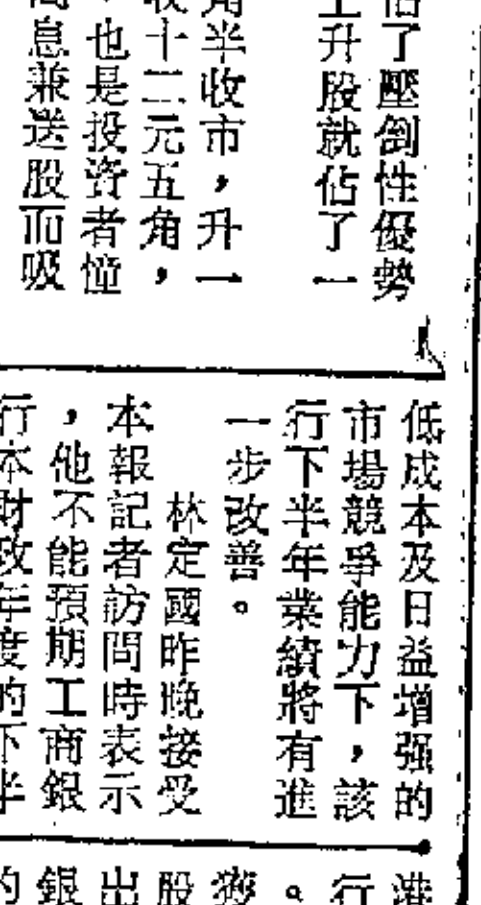 佔了壓倒性優勢
升股就佔了一
角半收市，升一
收十二元五角，
，也是投資者憧
息兼送股而吸
低成本及日益增强的
市場競爭能力下，該
行下半年業績將有進
一步改善。
林定國昨晚接受
本報記者訪問時表示
，他不能預期工商銀
行本財政年度的下半
港
行
。
獲
股
出
銀
的